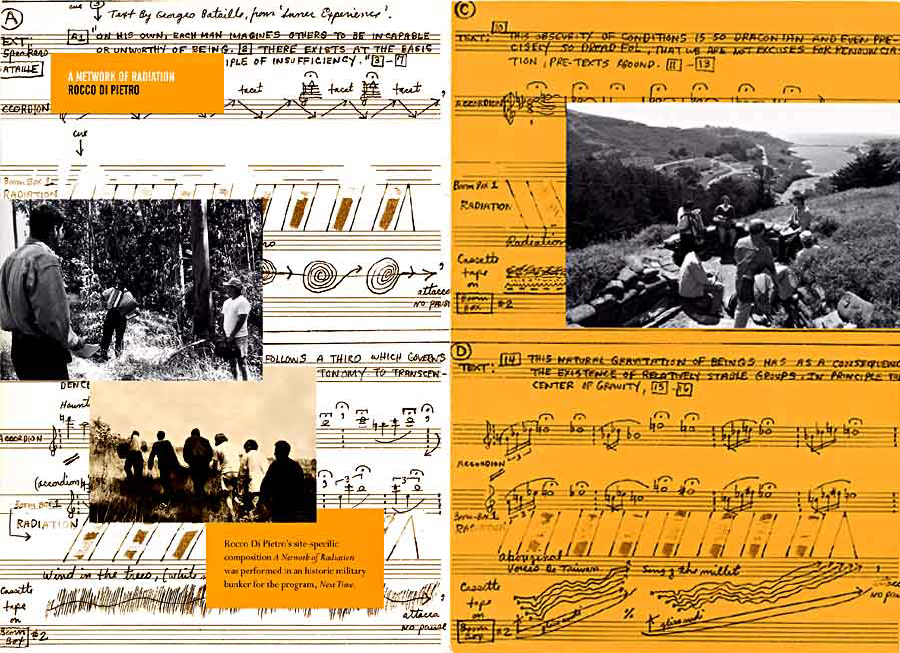 A
cue
Text By Georges Bataille, from 'Inner Experience'.
TEXT:
Speakers
BATAILLE
A1 "ON HIS OWN, EACH MAN IMAGINES OTHERS TO BE INCAPABLE
OR UNWORTHY OF BEING. 2 THERE EXISTS AT THE BASIS
IPLE OF INSUFFICIENCY." 3 - 7
A NETWORK OF RADIATION
ROCCO DI PIETRO
tacet tacet tacet
CCORDION
cue
Boom Box 1
RADIATION
attacca
NO PAUSE
FOLLOWS A THIRD WHICH GOVERNS
TONOMY TO TRANSCEN-
DENCE
Haunt
ACCORDION
(accordion)
Boom Box 1
RADIATION
Rocco Di Pietro's site-specific
composition A Network of Radiation
was performed in an historic military
bunker for the program, Next Time.
Wind in the trees, (white
Cassette
tape
on
Boom
Box #2
attacca
NO pause
C
TEXT: 10 THIS OBSCURITY OF CONDITIONS IS SO DRACONIAN AND EVEN PRE-
CISELY SO DREADFUL, THAT WE ARE NOT EXCUSES FOR RENOUNCIA-
TION, PRE-TEXTS ABOUND. 11 - 13
ACCORDION
Boom Box 1
RADIATION
Radiation
Cassette
tape
on
Boom
Box #2
D
TEXT: 14 THIS NATURAL GRAVITATION OF BEINGS HAS AS A CONSEQUENC
THE EXISTENCE OF RELATIVELY STABLE GROUPS. IN PRINCIPLE TH
CENTER OF GRAVITY, 15 - 16
ACCORDION
Boom Box 1
RADIATION
aboriginal
Voices De Taiwan
Sing of the millet
Cassette
tape
on
Boom
Box #2
glissandi
% glissandi
no pau